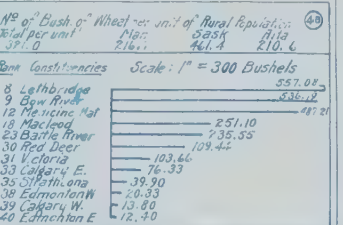 Nº of Bush. of Wheat per unit of Rural Population 48
Total per unit Man. Sask Alta
216. 461.4 210.6
Rank Constituencies Scale: 1" = 300 Bushels
8 Lethbridge 557.08
9 Bow River 536.19
12 Medicine Hat 487.21
18 Macleod 251.10
23 Battle River 235.55
30 Red Deer 109.44
31 Victoria 103.66
33 Calgary E. 76.33
35 Strathcona 39.90
38 Edmonton W 20.33
39 Calgary W. 13.80
40 Edmonton E 12.40